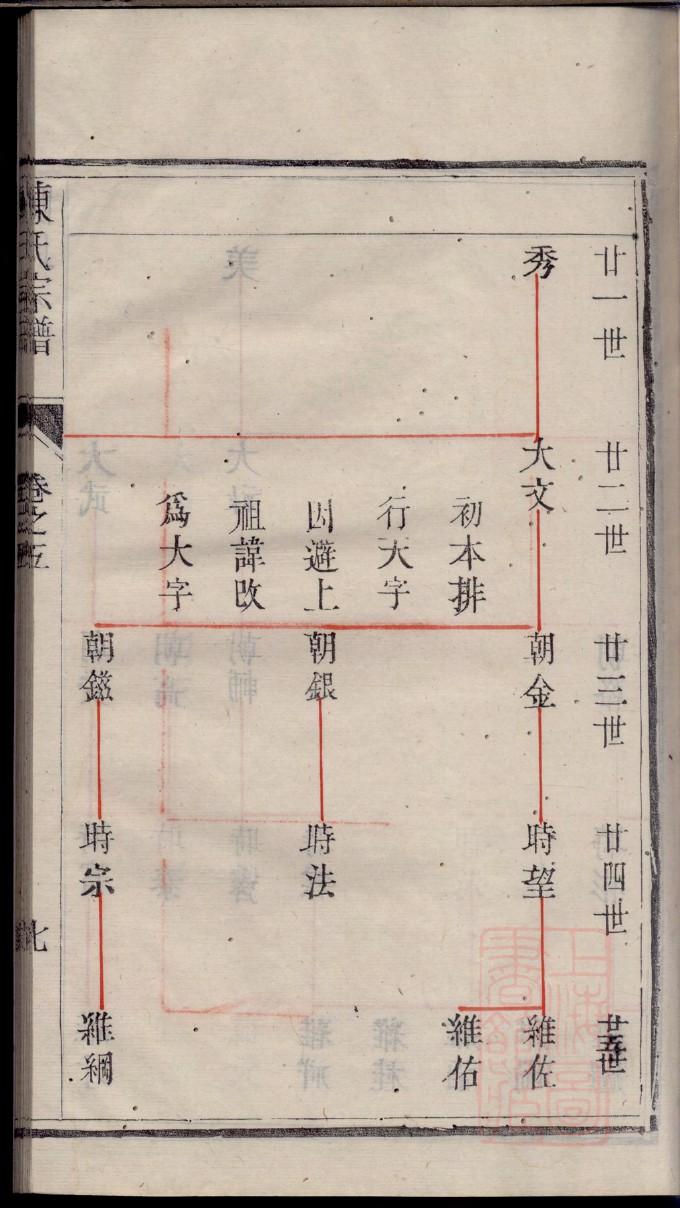 廿一世
廿二世
廿三世
廿四世
廿五世
秀
大文
初本排
行大字
因避上
祖諱改
爲大字
朝金
朝銀
朝鎡
時望
時法
時宗
維佐
維佑
維綱
陳氏宗譜
卷之五